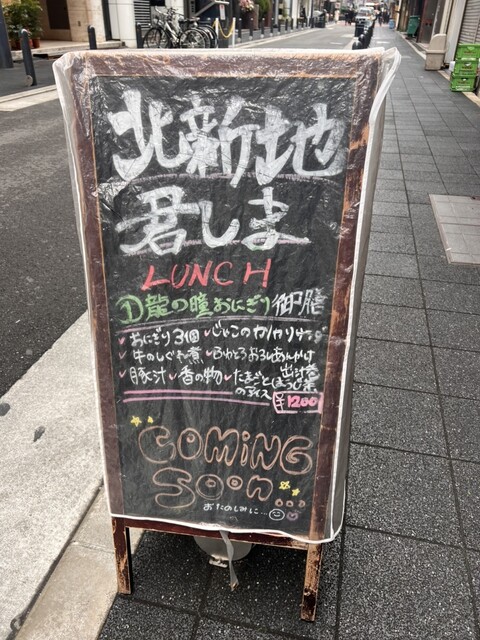 北新地
君しま
LUNCH
①龍の瞳おにぎり御膳
✓おにぎり3個 ✓じゃこのカリカリサラダ
✓牛のしぐれ煮 ✓ふわとろおろしあんかけ出汁巻
✓豚汁 ✓香の物 ✓たまごとほうじ茶のアイス
¥1200
COMiNG
Soon...
おたのしみに...